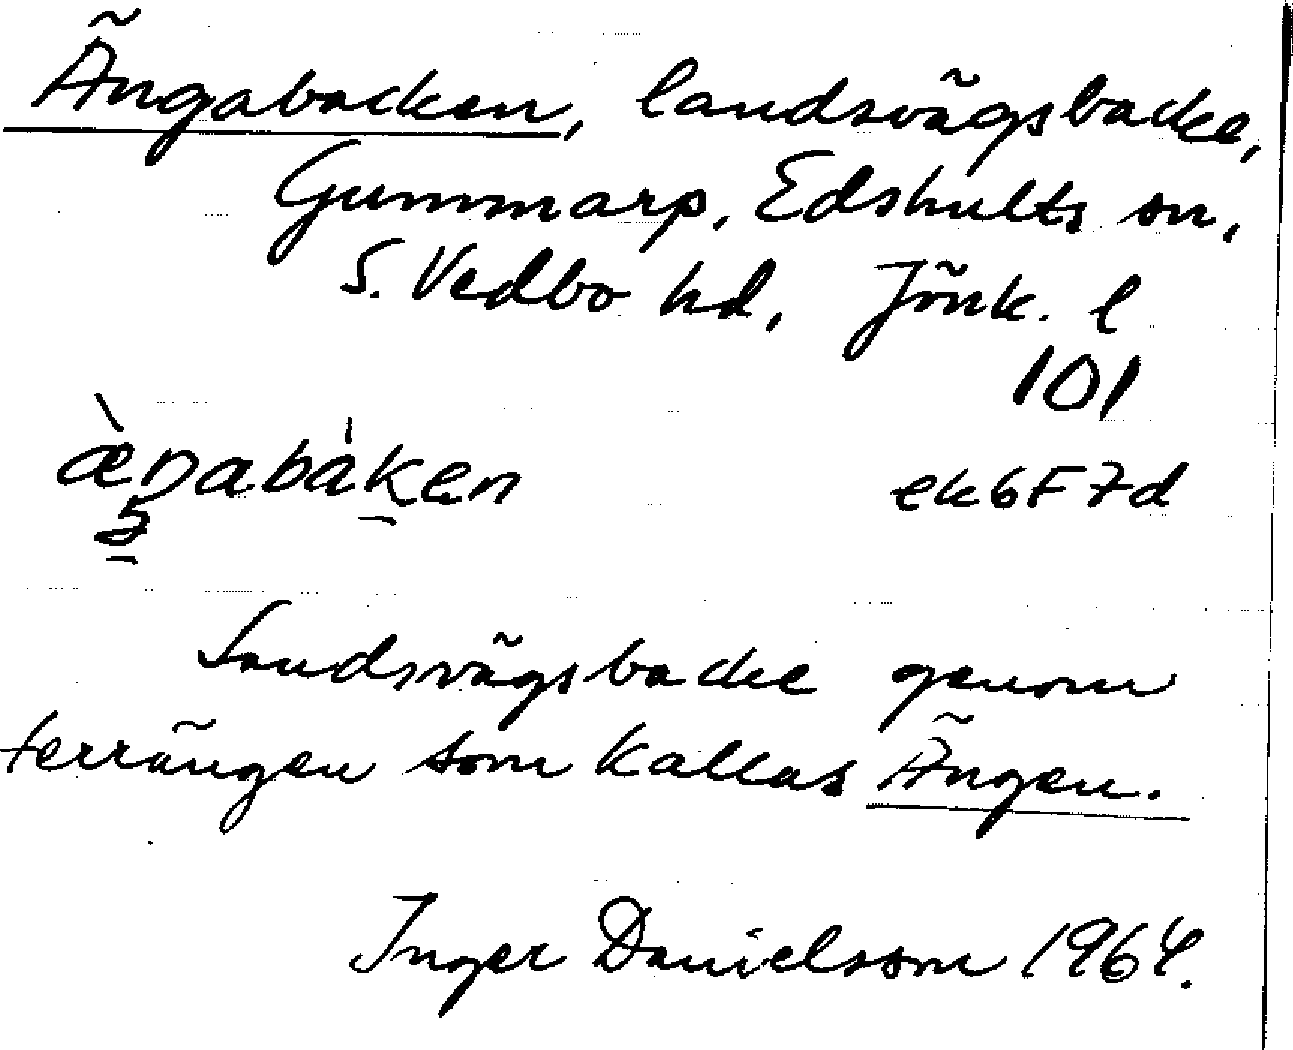 Ängabacken, landsvägsbacke,
Gummarp, Edshults sn,
S. Vedbo hd, Jönk. l
101
æ̀ŋabàken ek6F7d
Landsvägsbacke genom
terrängen som kallas Ängen.
Inger Danielsson 1964.